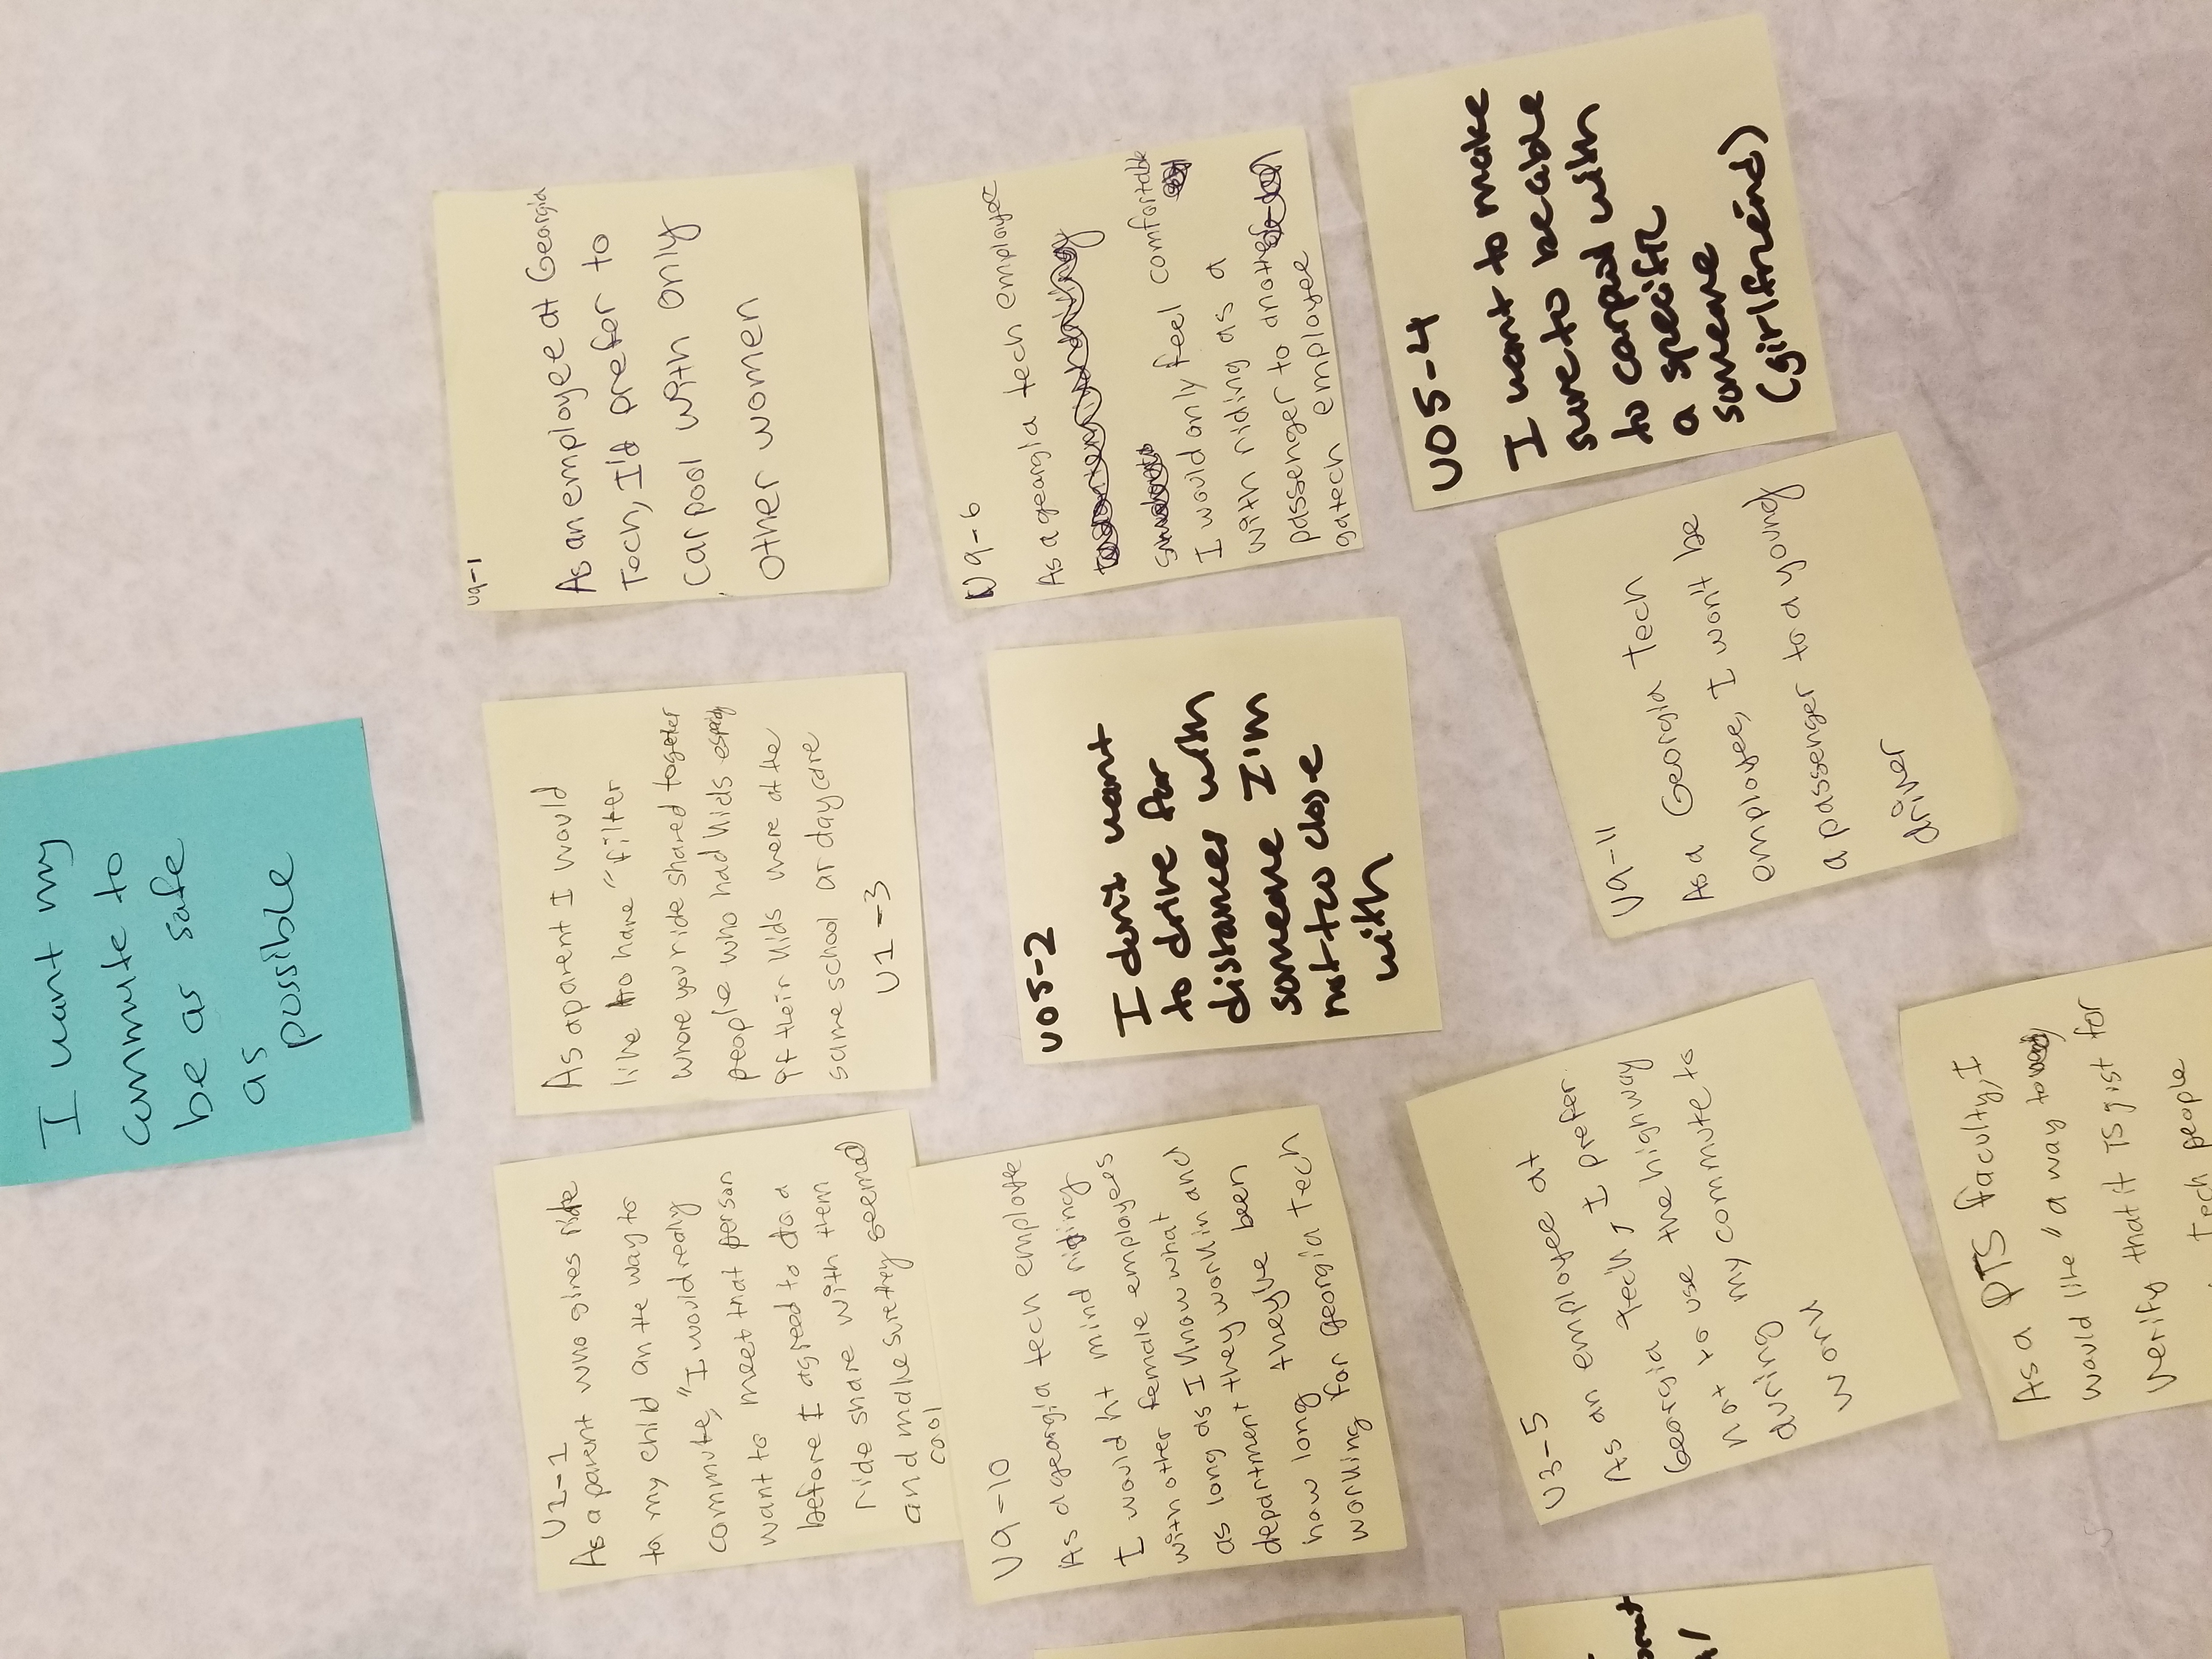 I want my
commute to
be as safe
as
possible
U1-1
As a parent who gives ride
to my child on the way to
commute, "I would really
want to meet that person
before I agreed to do a
ride share with them
and make sure they seemed
cool
As a parent I would
like to have "filter
where you ride shared together
people who had kids especially
if their kids were at the
same school or daycare
U1-3
U9-1
As an employee at Georgia
Tech, I'd prefer to
carpool with only
other women
U9-10
As a georgia tech employee
I wouldn't mind riding
with other female employees
as long as I know what
department they work in and
how long they've been
working for georgia tech
U05-2
I don't want
to drive far
distances with
someone I'm
not too close
with
U9-6
As a georgia tech employee
I would only feel comfortable
with riding as a
passenger to another
gatech employee
U3-5
As an employee at
Georgia Tech, I prefer
not to use the highway
during my commute to
work
U9-11
As a Georgia Tech
employee, I won't be
a passenger to a young
driver
U05-4
I want to make
sure to be able
to carpool with
a specific
someone
(girlfriend)
As a PTS faculty, I
would like "a way to
verify that it is just for
Tech people